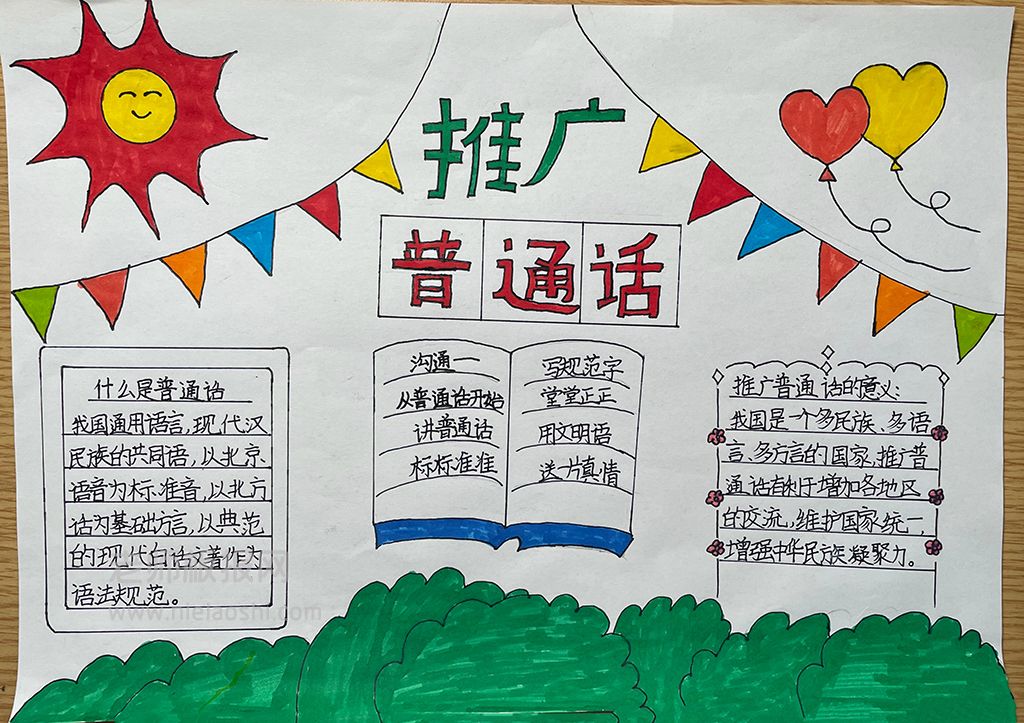 推广
普通话
什么是普通话
我国通用语言,现代汉
民族的共同语,以北京
语音为标准音,以北方
话为基础方言,以典范
的现代白话文著作为
语法规范。
沟通一
从普通话开始
讲普通话
标标准准
写规范字
堂堂正正
用文明语
送片真情
推广普通话的意义:
我国是一个多民族、多语
言、多方言的国家,推广普
通话有利于增加各地区
的交流,维护国家统一,
增强中华民族凝聚力。
老师板报网